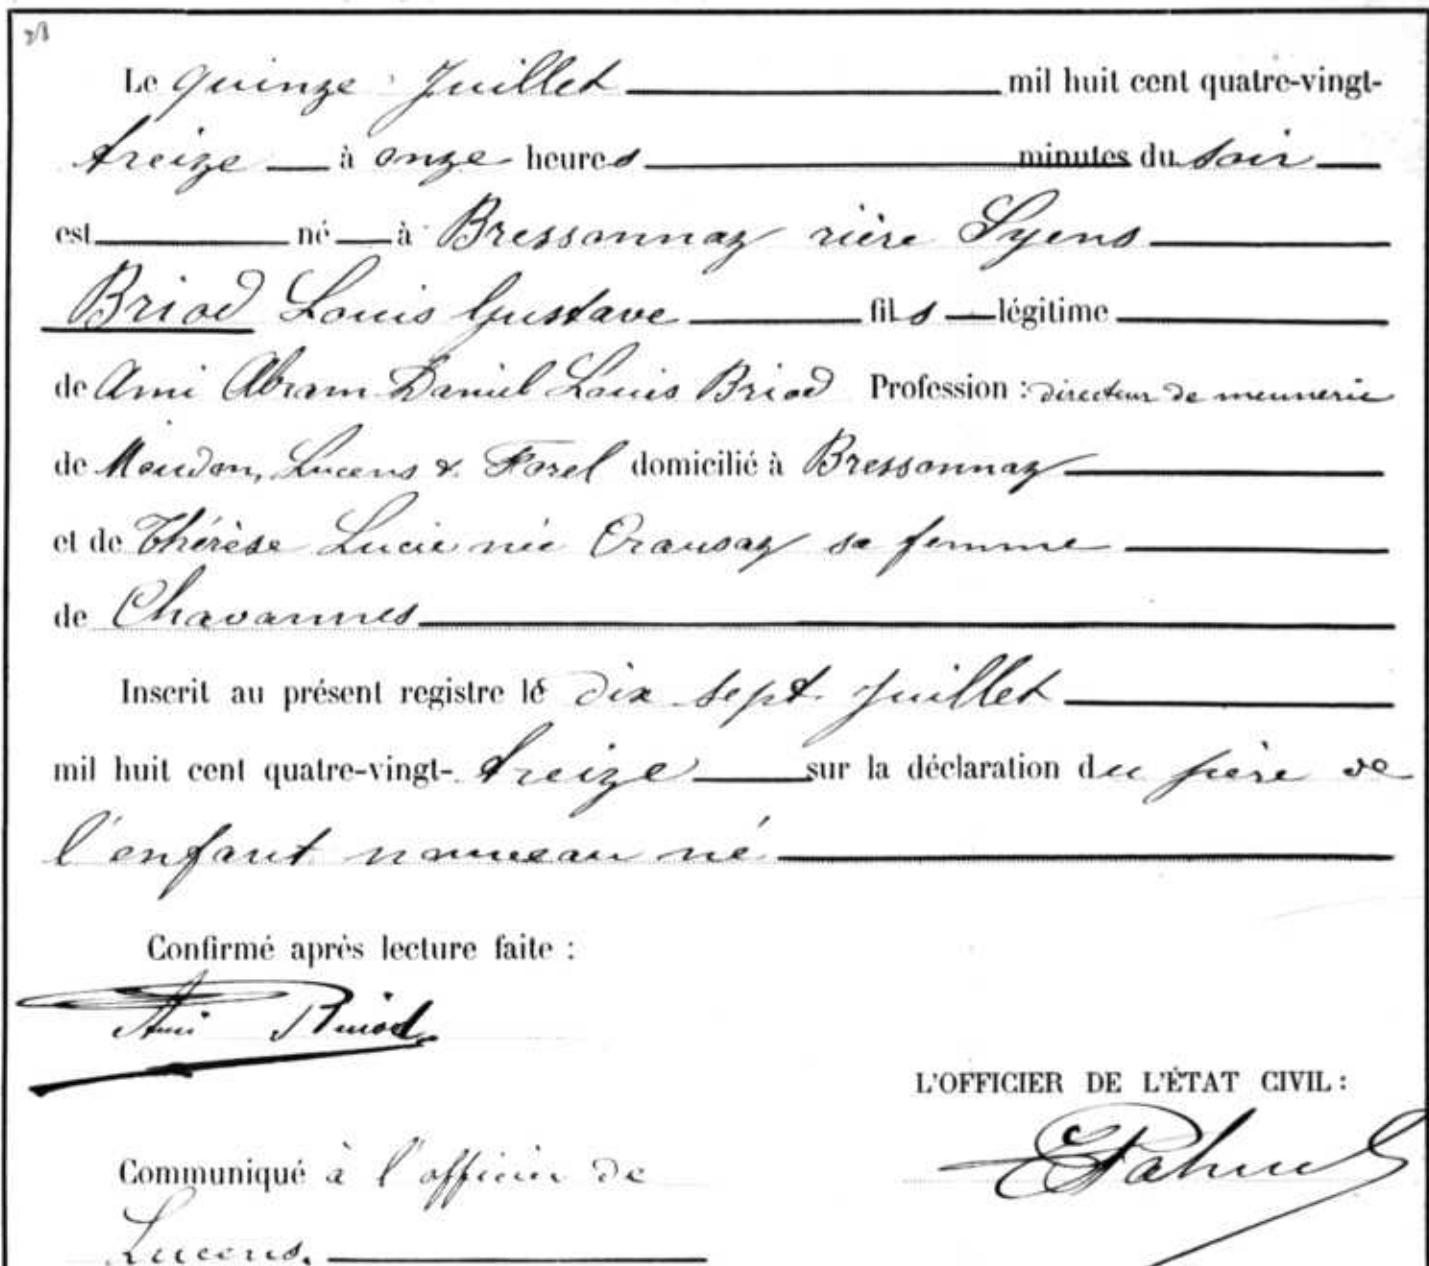 Le quinze Juillet mil huit cent quatre-vingt-
treize à onze heures minutes du soir
est né à Bressonnaz rière Syens
Briod Louis Gustave fils légitime
de Ami Abram Daniel Louis Briod Profession : directeur de meunerie
de Moudon, Lucens & Forel domicilié à Bressonnaz
et de Thérèse Lucie née Crausaz sa femme
de Chavannes
Inscrit au présent registre le dix sept Juillet
mil huit cent quatre-vingt-treize sur la déclaration du père de
l'enfant nouveau né
Confirmé après lecture faite :
Ami Briod
L'OFFICIER DE L'ÉTAT CIVIL :
Communiqué à l'officier de
Lucens.